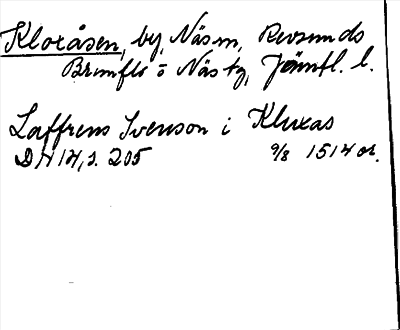 Kloxåsen, by, Näs sn, Revsunds
Brunflo o Näs tg, Jämtl. l.
Laffrens Svenson i Kluxas
DN 14, s. 205 9/8 1514 or.